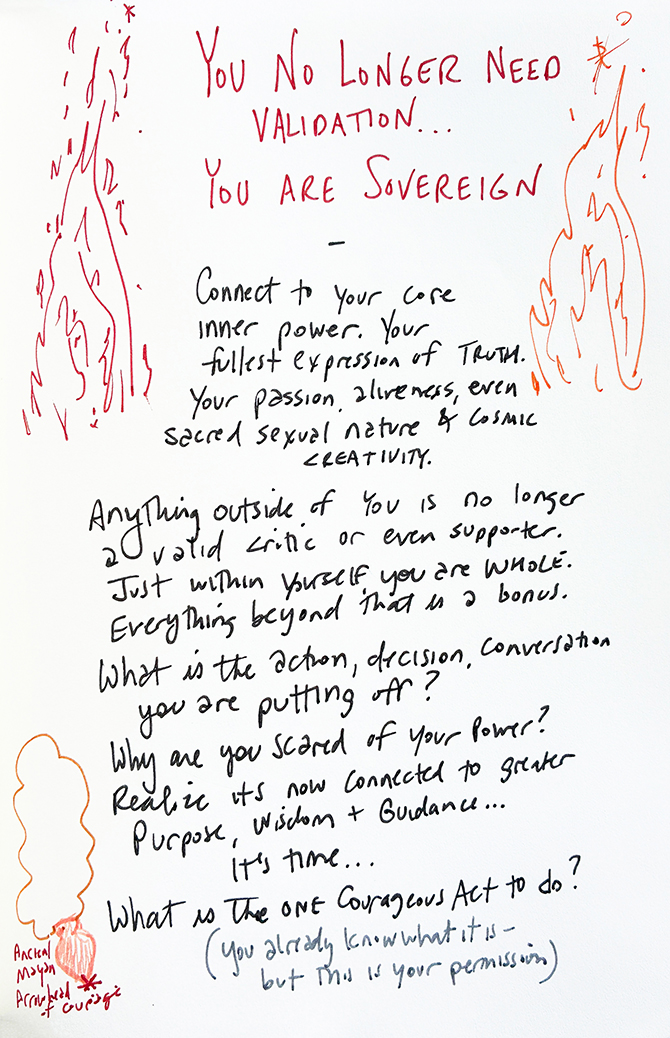 YOU NO LONGER NEED
VALIDATION...
YOU ARE SOVEREIGN
–
Connect to your core
inner power. Your
fullest expression of TRUTH.
Your passion, aliveness, even
sacred sexual nature & COSMIC
CREATIVITY.
Anything outside of You is no longer
a valid critic or even supporter.
Just within yourself you are WHOLE.
Everything beyond that is a bonus.
What is the action, decision, conversation
you are putting off?
Why are you scared of your Power?
Realize it's now connected to greater
Purpose, Wisdom + Guidance...
It's time...
What is the ONE Courageous Act to do?
(you already know what it is –
but this is your permission)
Ancient
Mayan
Arrowhead
of courage